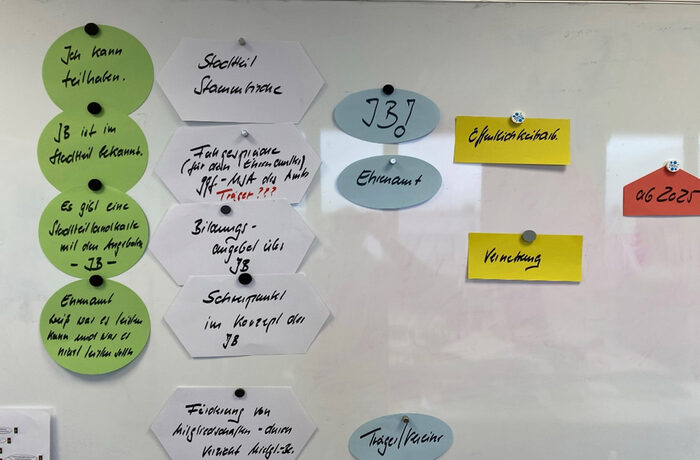 Ich kann
teilhaben.
JB ist im
Stadtteil bekannt.
Es gibt eine
Stadtteillandkarte
mit den Angeboten
- JB -
Ehrenamt
weiß was es leisten
kann und was es
nicht leisten sollte
Stadtteil
Stammtische
Fachgespräche
(für den Ehrenamtler)
ggf. - MA des Amtes
Träger???
Bildungs-
angebot über
JB
Schwerpunkt
im Konzept der
JB
Förderung von
Mitgliedschaften - durch
Verzicht
JB!
Ehrenamt
Träger/Vereine
Öffentlichkeitsarb.
Vernetzung
ab 2025